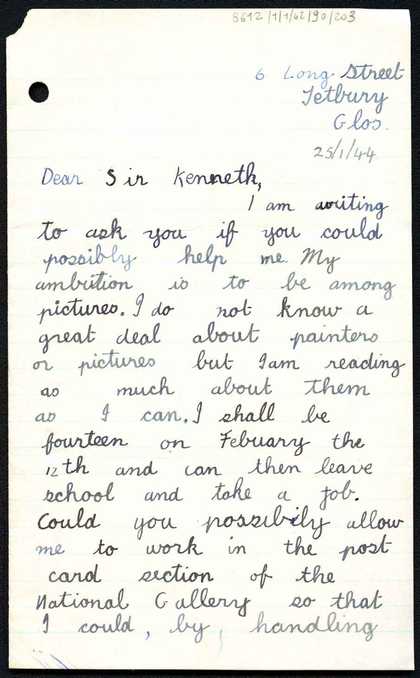 8612/1/1/62/90/203
6 Long Street
Tetbury
Glos.
25/1/44
Dear Sir Kenneth,
I am writing
to ask you if you could
possibly help me. My
ambition is to be among
pictures. I do not know a
great deal about painters
or pictures but I am reading
as much about them
as I can. I shall be
fourteen on Febuary the
12th and can then leave
school and take a job.
Could you possibily allow
me to work in the post
card section of the
National Gallery so that
I could, by, handling